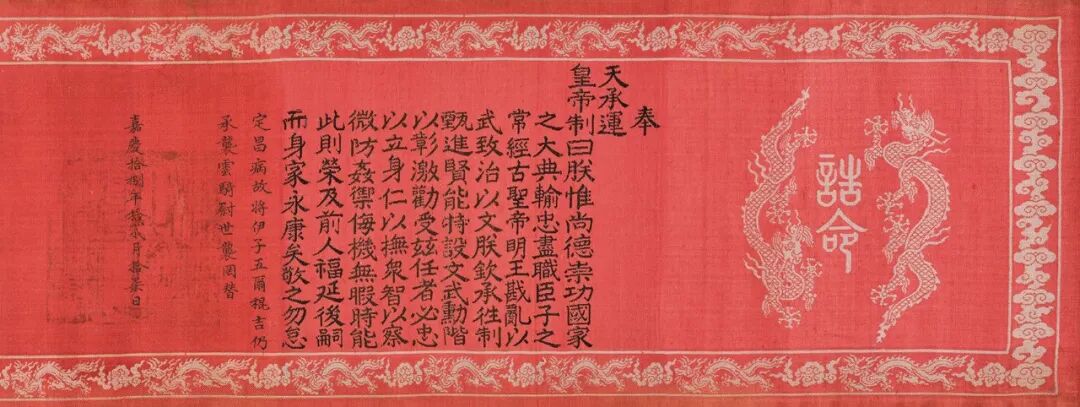 誥命
奉
天承運
皇帝制曰朕惟尚德崇功國家
之大典輸忠盡職臣子之
常經古聖帝明王戡亂以
武致治以文朕欽承往制
甄進賢能特設文武勳階
以彰激勸受茲任者必忠
以立身仁以撫衆智以察
微防姦禦侮機無暇時能
此則榮及前人福延後嗣
而身家永康矣敬之勿怠
定昌病故將伊子五爾棍吉仍
承襲雲騎尉世襲罔替
嘉慶拾捌年拾貳月拾柒日